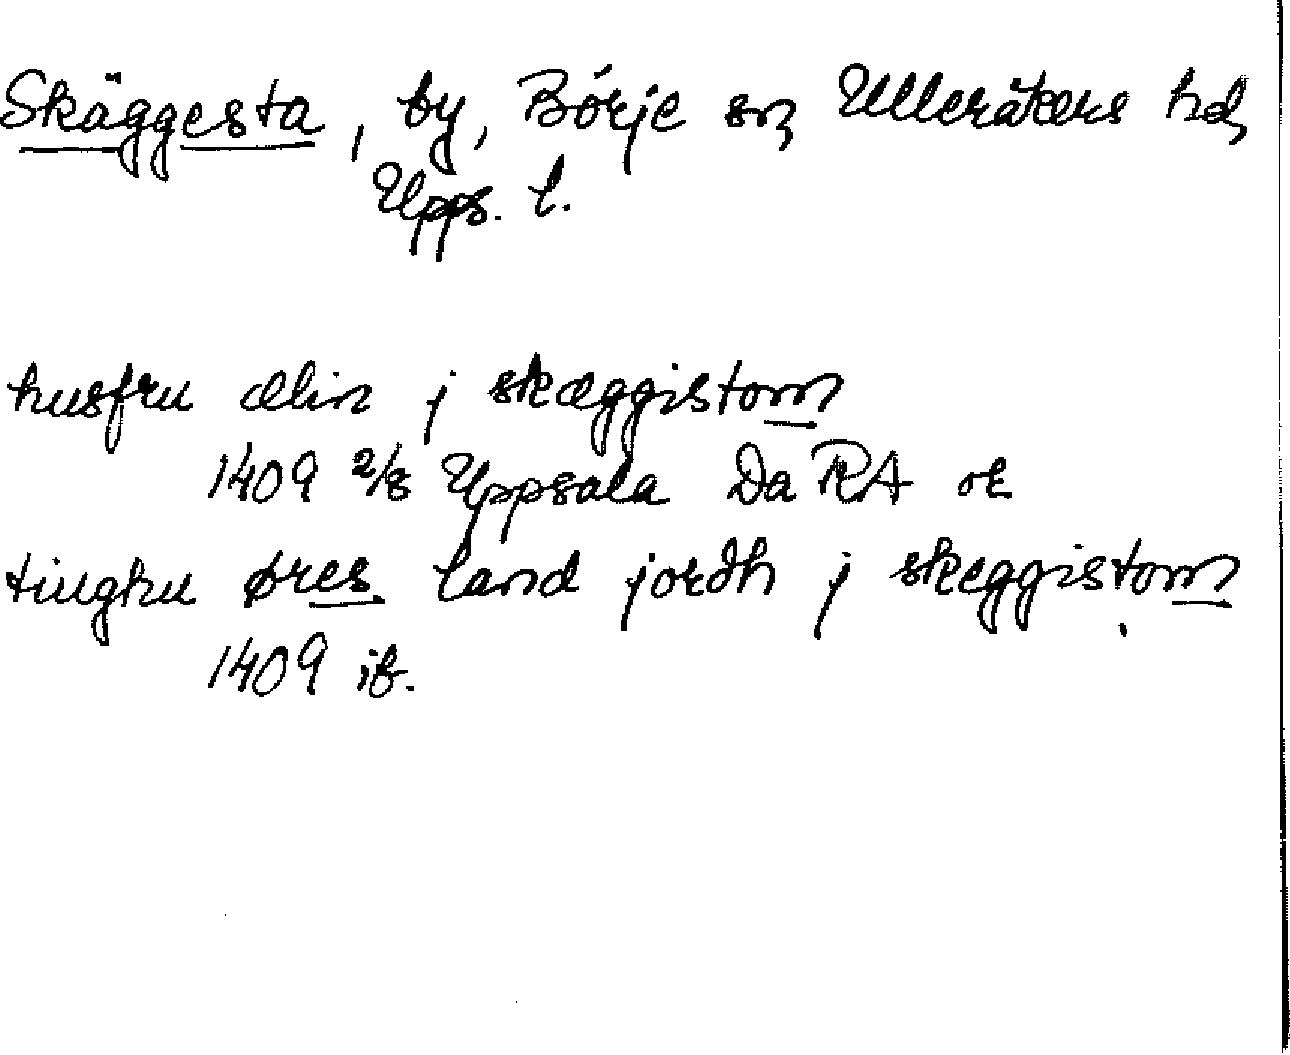 Skäggesta, by, Börje sn, Ulleråkers hd,
Upps. l.
husfru ælin j skæggistom
1409 2/8 Uppsala Da RA ok
tiughu øres land jordh j skeggistom
1409 ib.